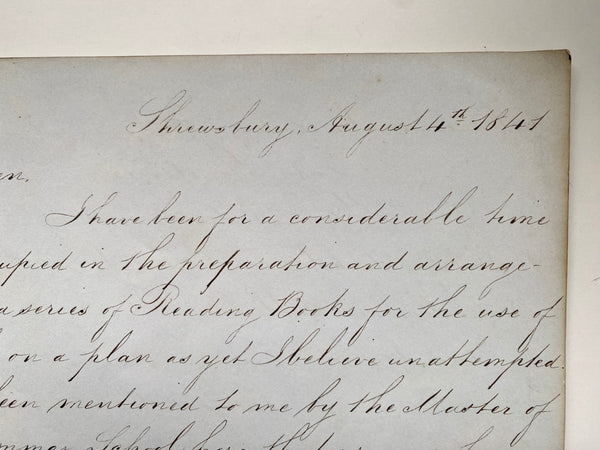 Shrewsbury, August 4th 1841
en.
I have been for a considerable time
upied in the preparation and arrange-
a series of Reading Books for the use of
on a plan as yet I believe unattempted.
een mentioned to me by the Master of
mmar School here that